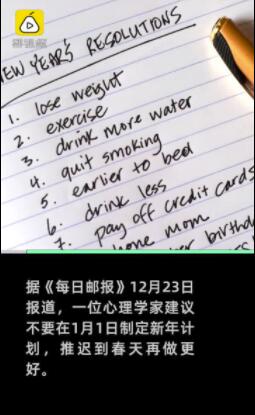 梨视频
NEW YEAR'S RESOLUTIONS
1. lose weight
2. exercise
3. drink more water
4. quit smoking
5. earlier to bed
6. drink less
7. pay off credit cards
phone mom
birthd
据《每日邮报》12月23日
报道，一位心理学家建议
不要在1月1日制定新年计
划，推迟到春天再做更
好。